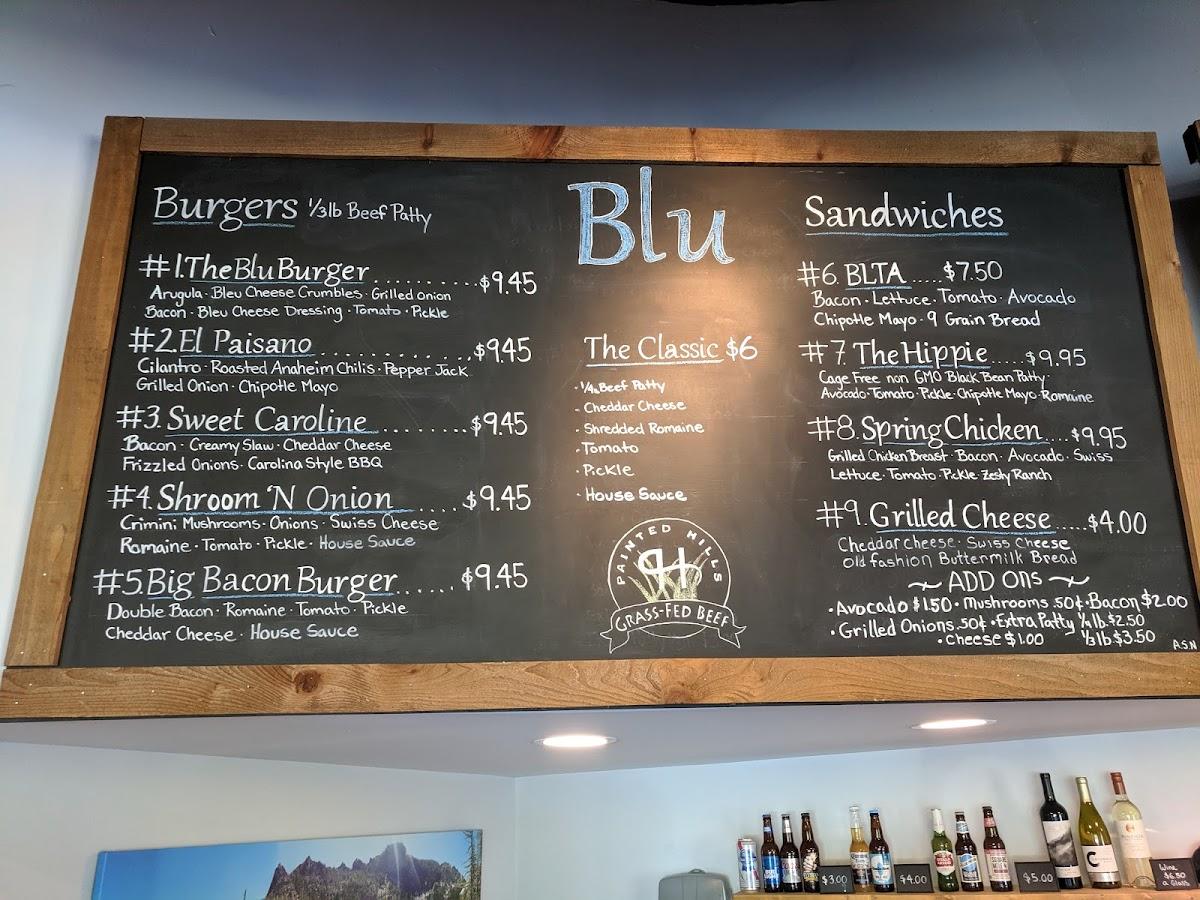 Blu
Burgers 1/3lb Beef Patty
#1. The Blu Burger ........ $9.45
Arugula · Bleu Cheese Crumbles · Grilled Onion
Bacon · Bleu Cheese Dressing · Tomato · Pickle
#2. El Paisano .............. $9.45
Cilantro · Roasted Anaheim Chilis · Pepper Jack
Grilled Onion · Chipotle Mayo
#3. Sweet Caroline ........ $9.45
Bacon · Creamy Slaw · Cheddar Cheese
Frizzled Onions · Carolina Style BBQ
#4. Shroom 'N Onion ...... $9.45
Crimini Mushrooms · Onions · Swiss Cheese
Romaine · Tomato · Pickle · House Sauce
#5. Big Bacon Burger ...... $9.45
Double Bacon · Romaine · Tomato · Pickle
Cheddar Cheese · House Sauce
The Classic $6
· 1/4lb Beef Patty
· Cheddar Cheese
· Shredded Romaine
· Tomato
· Pickle
· House Sauce
PAINTED HILLS
PH
GRASS-FED BEEF
Sandwiches
#6. BLTA ..... $7.50
Bacon · Lettuce · Tomato · Avocado
Chipotle Mayo · 9 Grain Bread
#7. The Hippie ..... $9.95
Cage Free non GMO Black Bean Patty
Avocado · Tomato · Pickle · Chipotle Mayo · Romaine
#8. Spring Chicken .... $9.95
Grilled Chicken Breast · Bacon · Avocado · Swiss
Lettuce · Tomato · Pickle · Zesty Ranch
#9. Grilled Cheese ..... $4.00
Cheddar Cheese · Swiss Cheese
Old Fashion Buttermilk Bread
~ ADD Ons ~
· Avocado $1.50 · Mushrooms .50¢ · Bacon $2.00
· Grilled Onions .50¢ · Extra Patty 1/4lb. $2.50
· Cheese $1.00 1/3lb. $3.50
A.S.N
$3.00
$4.00
$5.00
Wine
$6.50
a Glass